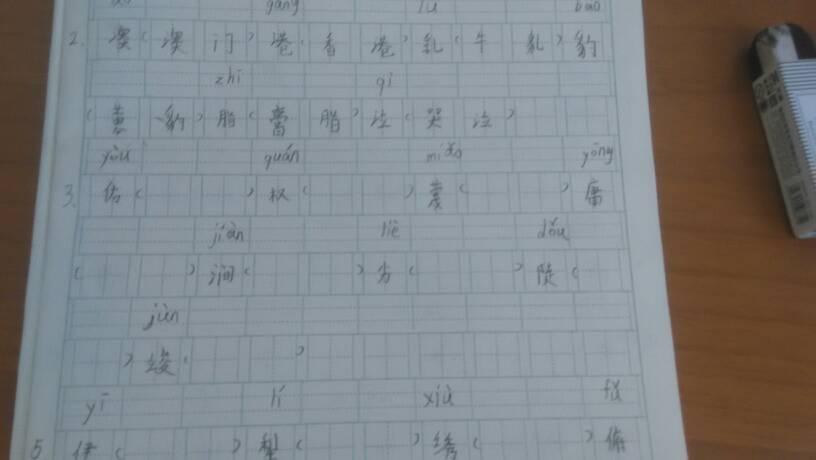 gǎng lǔ bào
2. 澳(澳门)港(香港)乳(牛乳)豹
zhī qì
(豹)脂(膏脂)泣(哭泣)
yòu quán miǎo yōng
3. 佑( )权( )( )庸
jiàn liè dǒu
( )涧( )劣( )陡(
jùn
)竣( )
yī lí xiù fǔ
5 伊( )犁( )绣( )俯